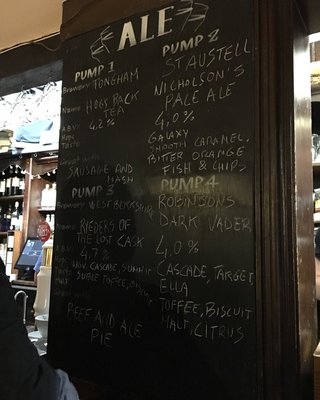 ALE
PUMP 1
Brewery: TONGHAM
Name: HOGS BACK
TEA
A.B.V: 4,2 %
Hops:
Taste:
Great with:
SAUSAGE AND
MASH
PUMP 2
STAUSTELL
NICHOLSON'S
PALE ALE
4,0 %
GALAXY
SMOOTH CARAMEL,
BITTER ORANGE
FISH & CHIPS
PUMP 3
Brewery: WEST BERKSHIRE
Name: RIEDERS OF
THE LOST CASK
A.B.V: 4,7 %
CASCADE, SUMMIT
SUBLE TOFFEE,
BEEF AND ALE
PIE
PUMP 4
ROBINSONS
DARK VADER
4,0 %
CASCADE, TARGET,
ELLA
TOFFEE, BISCUIT
MALT, CITRUS